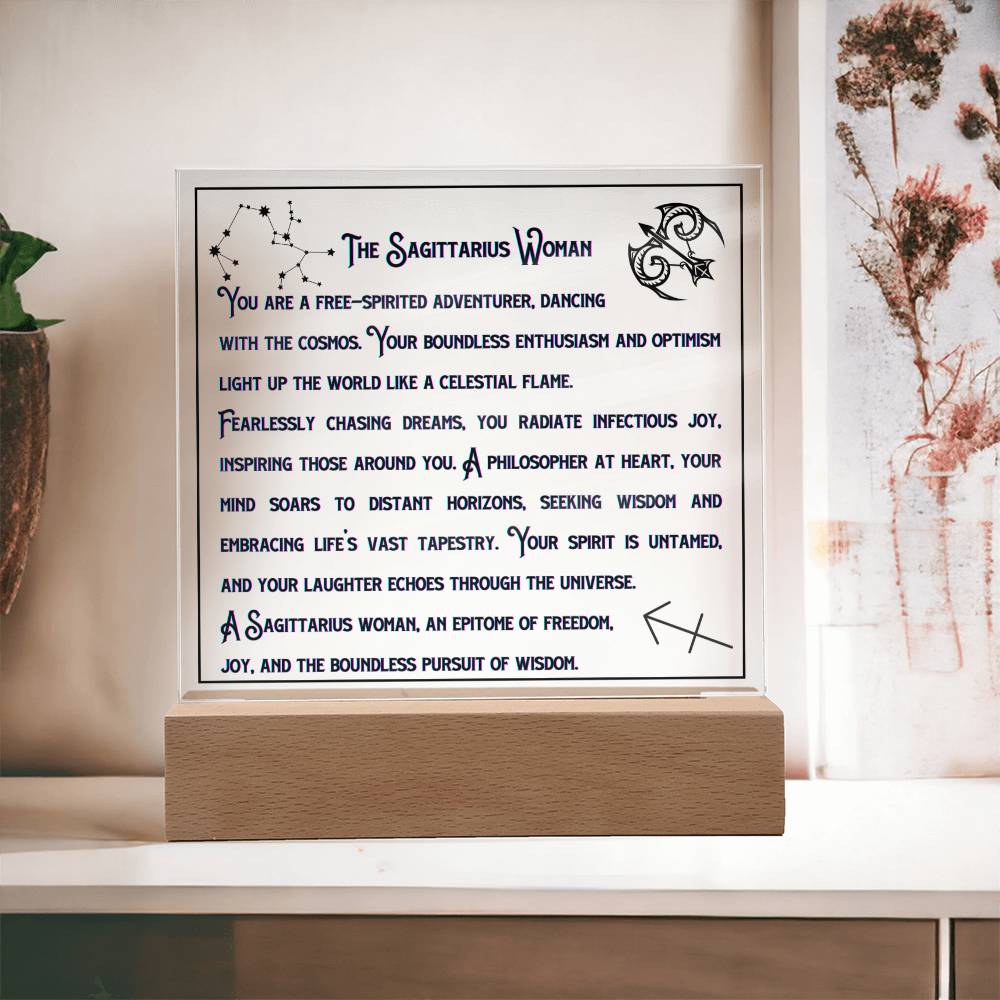 The Sagittarius Woman
You are a free-spirited adventurer, dancing
with the cosmos. Your boundless enthusiasm and optimism
light up the world like a celestial flame.
Fearlessly chasing dreams, you radiate infectious joy,
inspiring those around you. A philosopher at heart, your
mind soars to distant horizons, seeking wisdom and
embracing life's vast tapestry. Your spirit is untamed,
and your laughter echoes through the universe.
A Sagittarius woman, an epitome of freedom,
joy, and the boundless pursuit of wisdom.